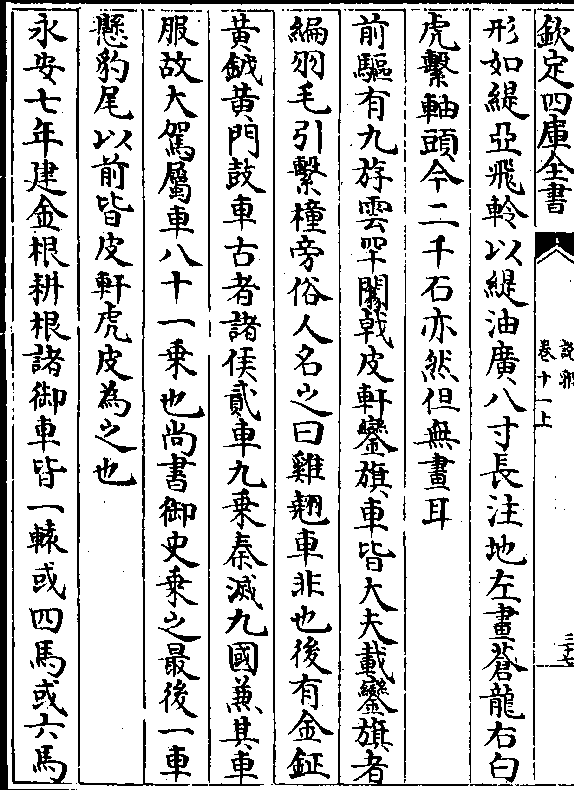 欽定四庫全書
說郛
卷十一上
三十七
形如緹亞飛軨以緹油廣八寸長注地左畫蒼龍右白
虎繫軸頭今二千石亦然但無畫耳
前驅有九斿雲罕闟戟皮軒鑾旗車皆大夫載鑾旗者
編羽毛引繫橦旁俗人名之曰雞翹車非也後有金鉦
黃鉞黃門鼓車古者諸侯貳車九乘秦滅九國兼其車
服故大駕屬車八十一乘也尚書御史乘之最後一車
懸豹尾以前皆皮軒虎皮為之也
永安七年建金根耕根諸御車皆一轅或四馬或六馬